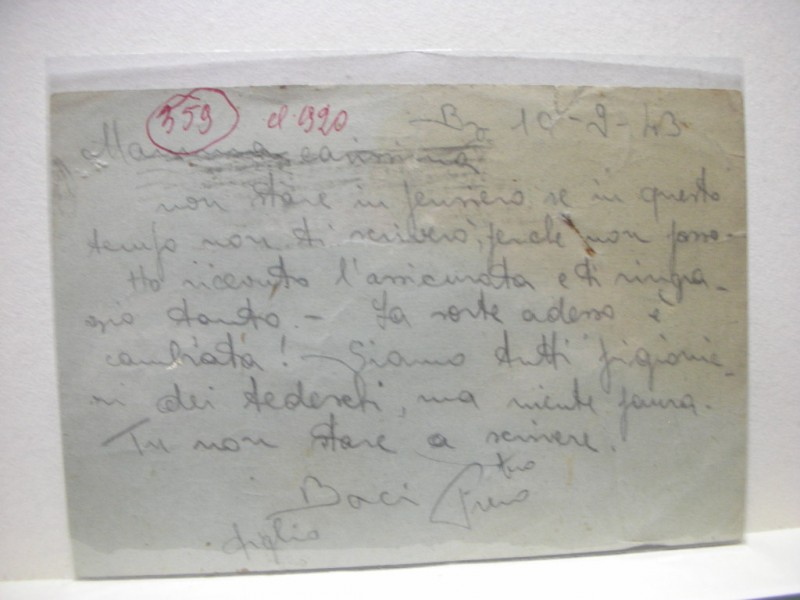 359
Bz 10-9-43
Mamma carissima
non stare in pensiero se in questo
tempo non ti scriverò, perche non posso.
Ho ricevuto l'assicurata e ti ringra-
zio tanto. - La sorte adesso è
cambiata! - Siamo tutti prigionie-
ri dei tedeschi, ma niente paura.
Tu non stare a scrivere.
Baci tuo
figlio